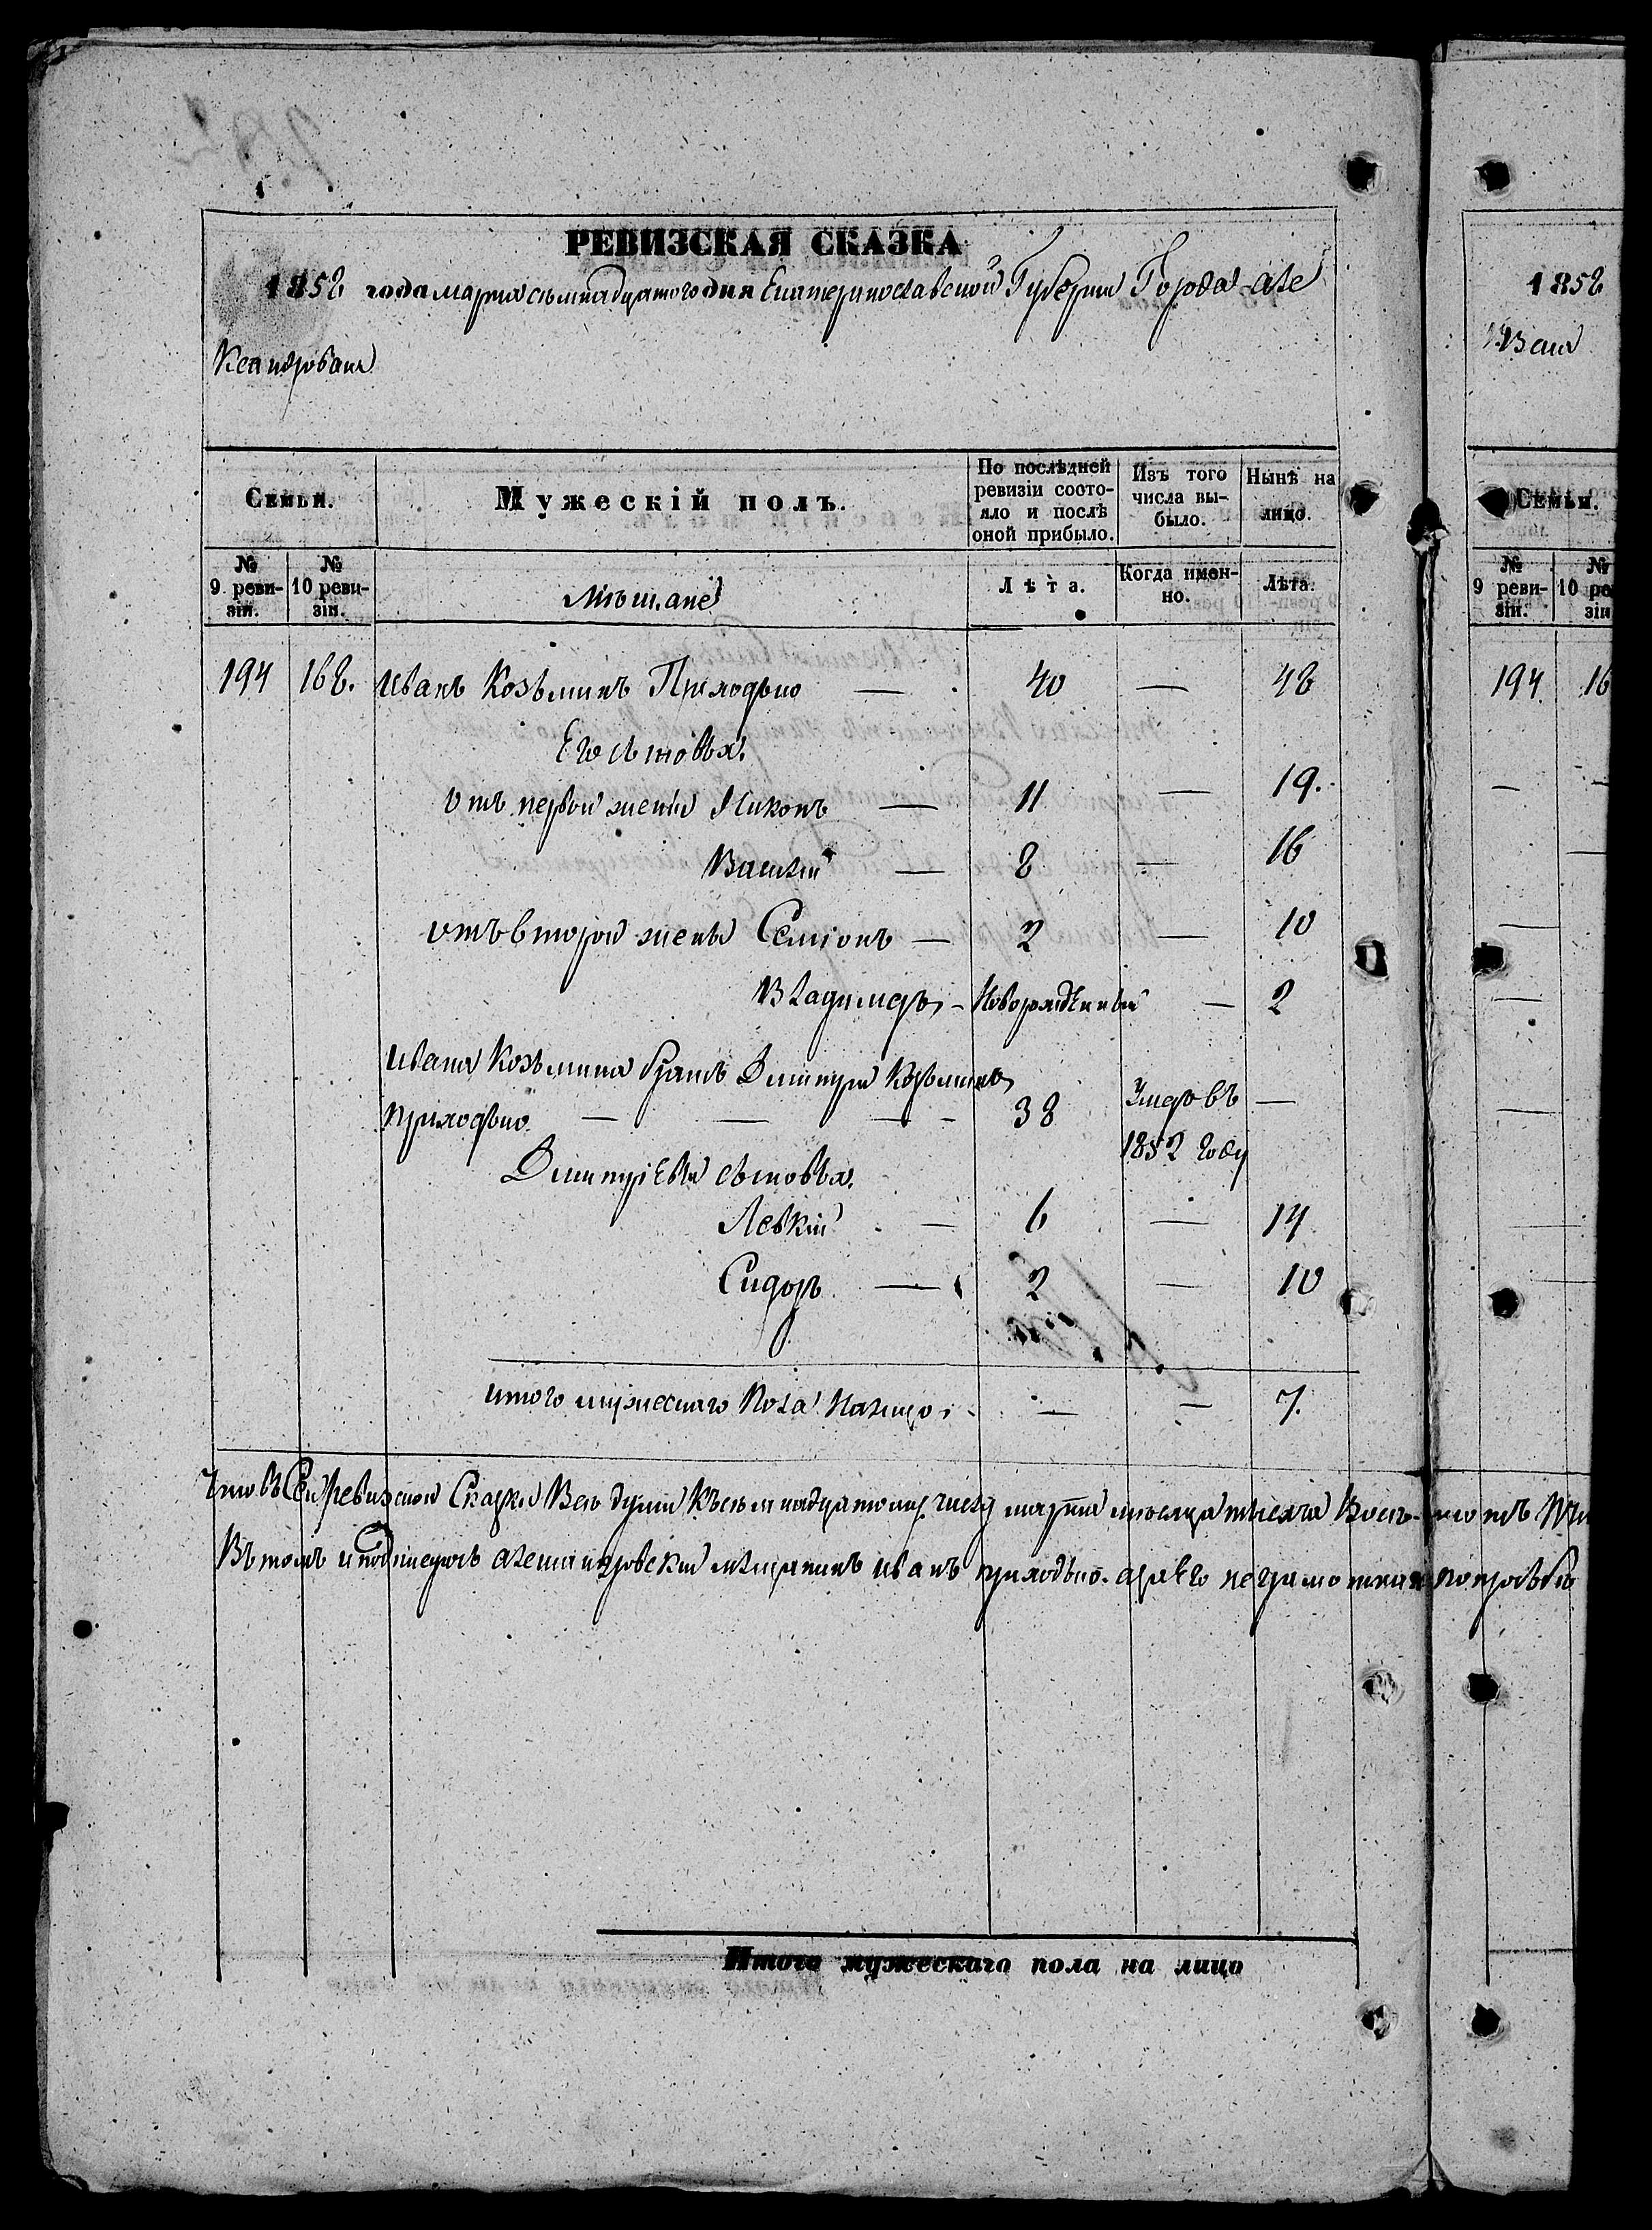 РЕВИЗСКАЯ СКАЗКА
1858 года марта семнадцатого дня Екатеринославской Губерніи Города Але
ксандровска
Семьи.
Мужескій полъ.
По послѣдней ревизіи состо-
яло и послѣ
оной прибыло.
Изъ того
числа вы-
было.
Нынѣ на
лицо.
№
9 реви-
зіи.
№
10 реви-
зіи.
Мѣщане
Лѣта.
Когда имен-
но.
Лѣта.
194 168. Иванъ Козьминъ Приходько — 40 — 48
Его сыновья.
отъ первой жены Никонъ — 11 — 19.
Василій — 8 — 16
отъ второй жены Семіонъ — 2 — 10
Владимеръ — Новорожденный — 2
Ивана Козьмина братъ Дмитрій Козьминъ
Приходько — — — 38 Умеръ въ —
1852 году
Дмитріевы сыновья.
Левкій — 6 — 14
Сидоръ — 2 — 10
Итого мужескаго пола на лицо — — 7.
Что въ сей ревизской Сказки Все души Къ семнадцатому числу марта месяца тысяча Восъ-
Въ томъ и подписуюсь александровскій мѣщанинъ Иванъ Приходько. а за его неграмотна по прозьбѣ
Итого мужескаго пола на лицо
1858
Семьи.
№
9 реви-
зіи.
№
10 ре
зіи
194 16